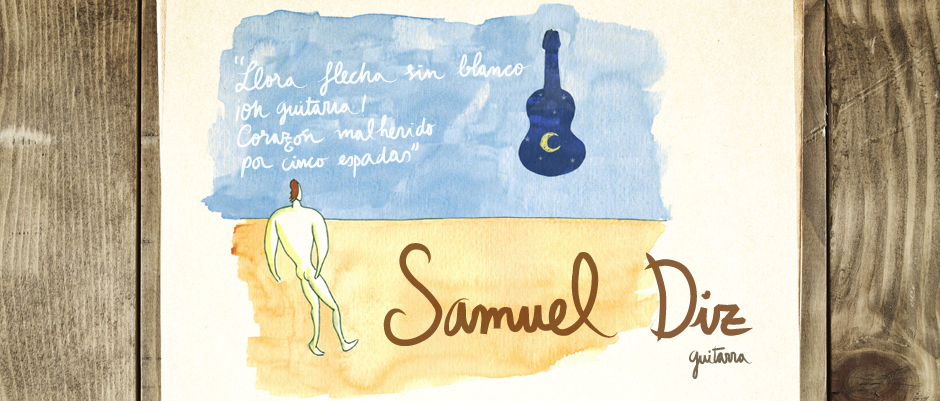 "Llora flecha sin blanco
¡oh guitarra!
Corazón malherido
por cinco espadas"
Samuel Diz
guitarra